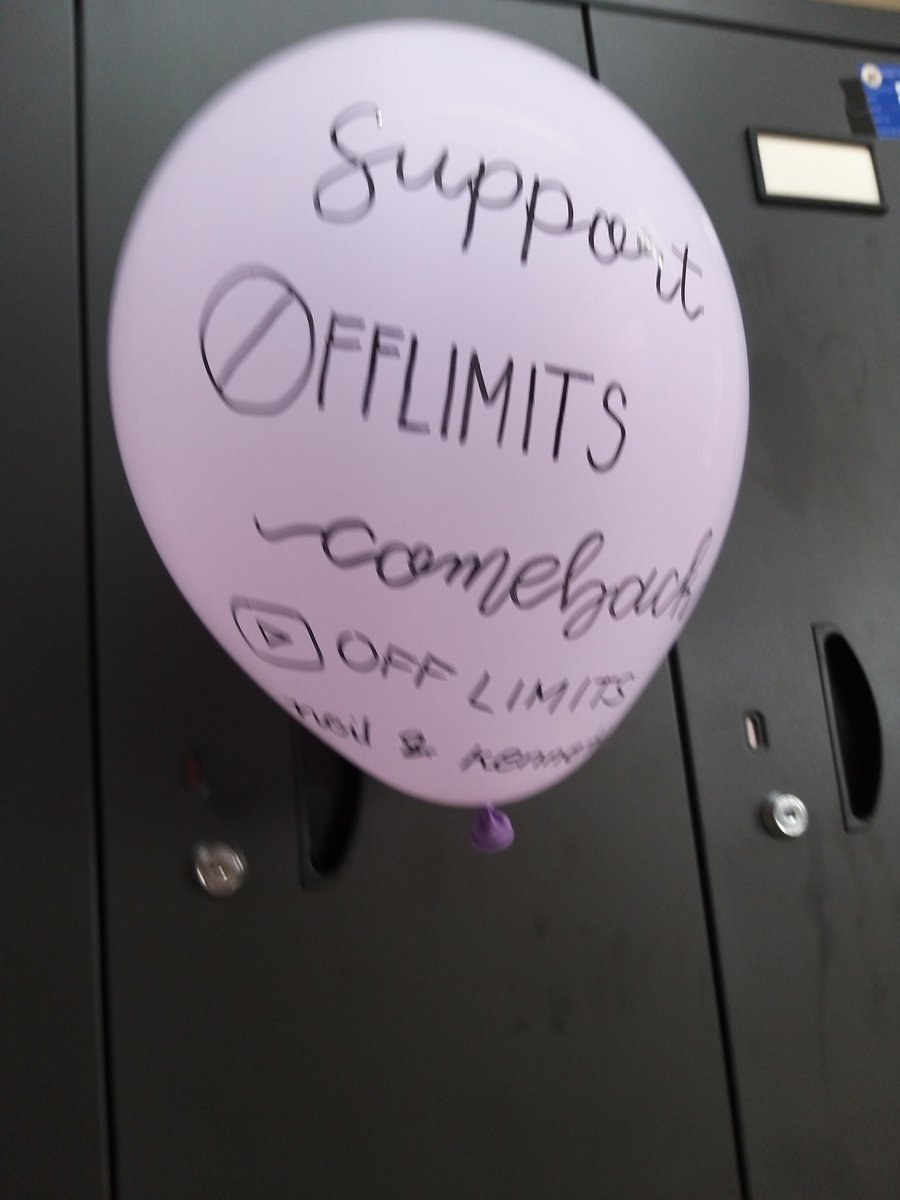 Support
ØFFLIMITS
comeback
OFF LIMITS
neil &